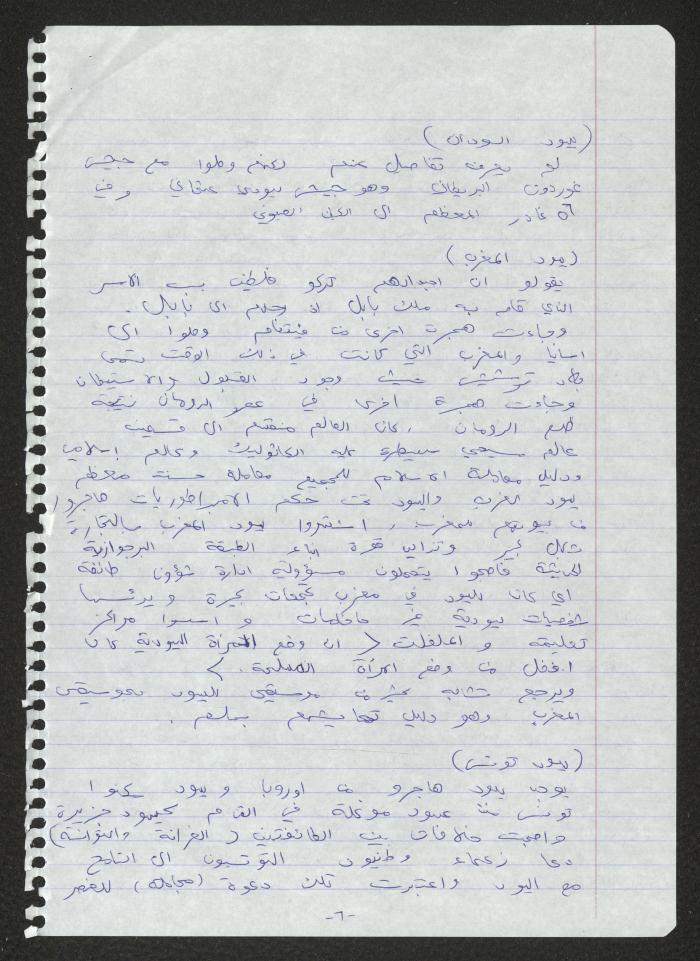 (يهود السودان)
لم يعرف تفاصيل عنهم لكنهم وصلوا مع جيش
غوردون البريطاني وهو جيش يهودي عثماني وفي
٥٦ غادر المعظم الى الكيان الصهيوني
(يهود المغرب)
يقولو ان اجدادهم تركو فلسطين بسبب الاسر
الذي قام به ملك بابل اذ رحلهم الى بابل .
وجاءت هجرة اخرى من وصلوا الى
اسبانيا والمغرب التي كانت في ذلك الوقت تسمى
بلاد ترشيش حيث وجود القبول والاستيطان
وجاءت هجرة اخرى في عصر الرومان نتيجة
ظلم الرومان . كان العالم منقسم الى قسمين
عالم مسيحي مسيطرة عليه الكاثوليك وعالم إسلامي
ودليل معاملة الاسلام للجميع معاملة حسنة معظم
يهود الغرب واليهود تحت حكم الامبراطوريات هاجروا
من بيوتهم للمغرب . اشتهروا يهود المغرب بالتجارة
بشكل كبير وتزايد هجرة ابناء الطبقة البرجوازية
الحديثة فاصبحوا يتحملون مسؤولية ادارة شؤون طائفة
اي كان لليهود في مغرب تجمعات كبيرة ويرئسها
شخصيات يهودية غير حاخامات و اسسوا مراكز
تعليمية و < ان وضع المرأة اليهودية كان
افضل من وضع المرأة المسلمة . >
ويرجع تشابه كثير من موسيقى اليهود بموسيقى
المغرب وهو دليل تعايشهم بسلام .
(يهود تونس)
يوجد يهود هاجرو من اوروبا ويهود سكنوا
تونس منذ عهود موغلة في القدم كيهود جزيرة
واصبحت خلافات بين الطائفتين (الغرانة والتوانسة)
دعا زعماء وطنيون التونسيون الى التسامح
مع اليهود واعتبرت تلك دعوة (مجاملة) للعنصر
-٦-